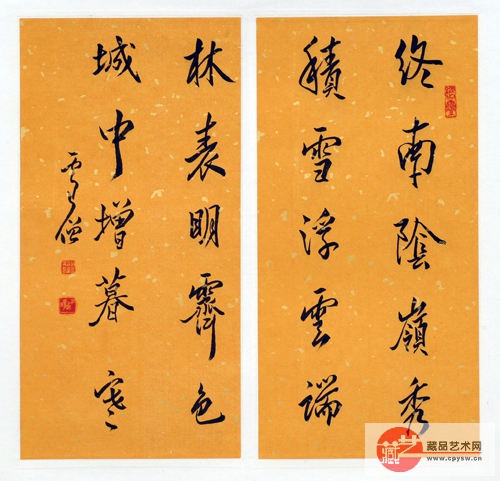 終南陰嶺秀
積雪浮雲端
林表明霽色
城中增暮寒
僧
藏艺
藏品艺术网
www.cpysw.cn